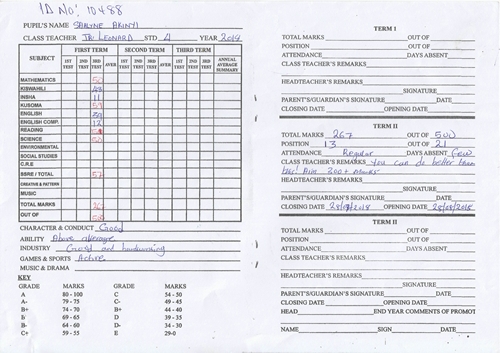 ID No: 10488
PUPIL'S NAME SHALYNE AKINYI
CLASS TEACHER TR. LEONARD STD 4 YEAR 2018
SUBJECT FIRST TERM SECOND TERM THIRD TERM
1ST TEST 2ND TEST 3RD TEST AVER 1ST TEST 2ND TEST 3RD TEST AVER 1ST TEST 2ND TEST 3RD TEST ANNUAL AVERAGE SUMMARY
MATHEMATICS 50
KISWAHILI
INSHA 11
KUSOMA
ENGLISH
ENGLISH COMP. 12
READING
SCIENCE
ENVIRONMENTAL
SOCIAL STUDIES
C.R.E
SSRE / TOTAL 57
CREATIVE & PATTERN
MUSIC
TOTAL MARKS 267
OUT OF 500
CHARACTER & CONDUCT Good
ABILITY Above average
INDUSTRY Good and hardworking
GAMES & SPORTS Active
MUSIC & DRAMA
KEY
GRADE MARKS GRADE MARKS
A 80 - 100 C 54 - 50
A- 79 - 75 C- 49 - 45
B+ 74 - 70 B+ 44 - 40
B 69 - 65 D 39 - 35
B- 64 - 60 D- 34 - 30
C+ 59 - 55 E 29-0
TERM I
TOTAL MARKS OUT OF
POSITION OUT OF
ATTENDANCE DAYS ABSENT
CLASS TEACHER'S REMARKS
HEADTEACHER'S REMARKS
SIGNATURE
PARENT'S/GUARDIAN'S SIGNATURE DATE
CLOSING DATE OPENING DATE
TERM II
TOTAL MARKS 267 OUT OF 500
POSITION 13 OUT OF 21
ATTENDANCE Regular DAYS ABSENT few
CLASS TEACHER'S REMARKS You can do better than
this! Aim 300+ marks
HEADTEACHER'S REMARKS
SIGNATURE
PARENT'S/GUARDIAN'S SIGNATURE DATE
CLOSING DATE OPENING DATE
TERM II
TOTAL MARKS OUT OF
POSITION OUT OF
ATTENDANCE DAYS ABSENT
CLASS TEACHER'S REMARKS
HEADTEACHER'S REMARKS
SIGNATURE
PARENT'S/GUARDIAN'S SIGNATURE DATE
CLOSING DATE OPENING DATE
HEAD END YEAR COMMENTS OF PROMOT
NAME SIGN DATE